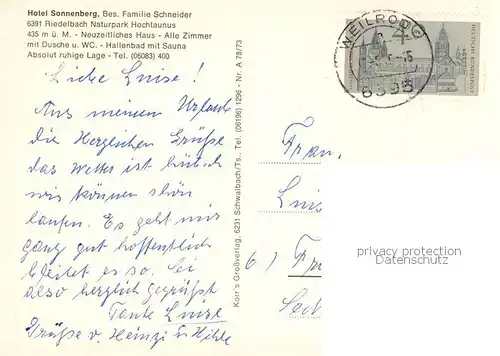 Hotel Sonnenberg, Bes. Familie Schneider
6391 Riedelbach Naturpark Hochtaunus
435 m ü. M. - Neuzeitliches Haus - Alle Zimmer
mit Dusche u. WC. - Hallenbad mit Sauna
Absolut ruhige Lage - Tel. (06083) 400
Liebe Luise!
Aus meinem Urlaub
die Herzlichen Grüße
das Wetter ist hübsch
wir können schön
laufen. Es geht mir
ganz gut hoffentlich
bleibet es so. Sei
also herzlich gegrüßt
Tante Luise
Grüße v. Heinzi u Hilde
Korr's Großverlag, 6231 Schwalbach/Ts., Tel. (06196) 1296 - Nr. A 78/73
WEILROD
6395
DEUTSCHE BUNDESPOST
Frau
Luis
6)
privacy protection
Datenschutz